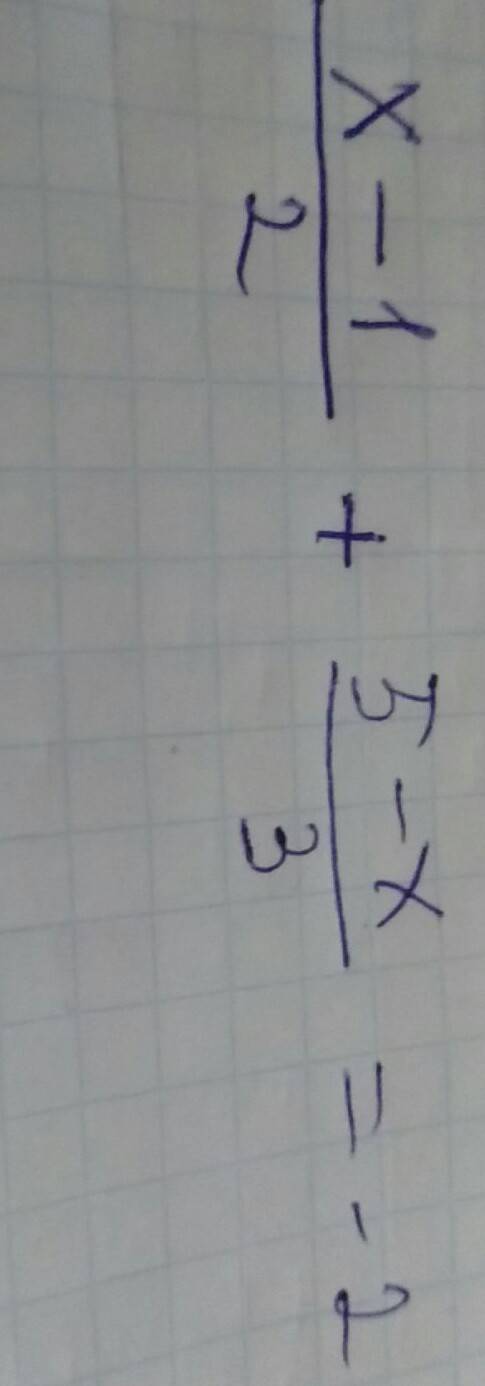 x - 1 / 2 + 5 - x / 3 = - 2